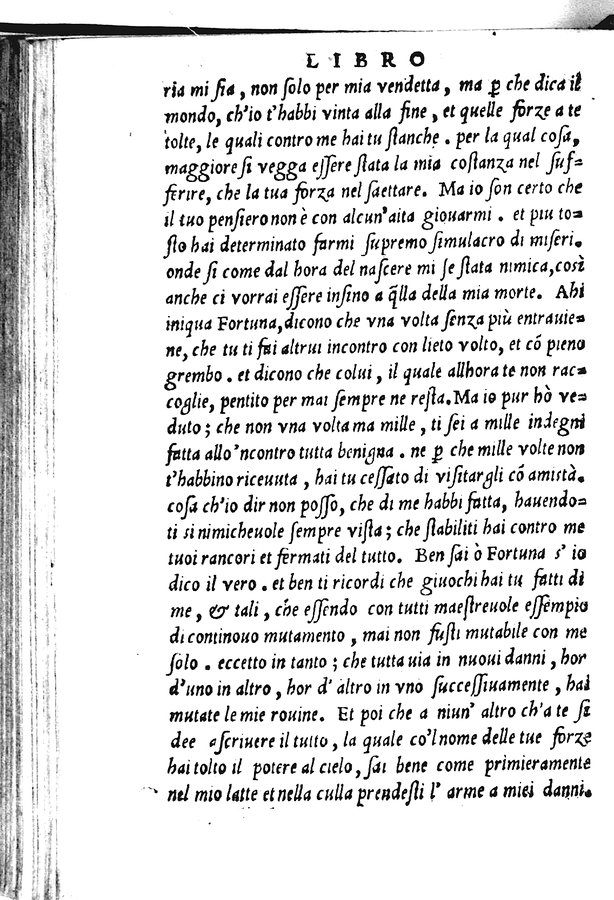 LIBRO
ria mi ſia, non ſolo per mia vendetta, ma ꝑ che dica il
mondo, ch'io t'habbi vinta alla fine, et quelle forze a te
tolte, le quali contro me hai tu ſtanche. per la qual coſa,
maggiore ſi vegga eſſere ſtata la mia coſtanza nel ſuf-
ferire, che la tua forza nel ſaettare. Ma io ſon certo che
il tuo penſiero non è con alcun'aita giouarmi. et piu to-
ſto hai determinato farmi ſupremo ſimulacro di miſeri.
onde ſi come dal hora del naſcere mi ſe ſtata nimica, così
anche ci vorrai eſſere inſino a q̃lla della mia morte. Ahi
iniqua Fortuna, dicono che vna volta ſenza più entrauie-
ne, che tu ti fai altrui incontro con lieto volto, et cõ pieno
grembo. et dicono che colui, il quale allhora te non rac-
coglie, pentito per mai ſempre ne reſta. Ma io pur hò ve-
duto; che non vna volta ma mille, ti ſei a mille indegni
fatta allo'ncontro tutta benigna. ne ꝑ che mille volte non
t'habbino riceuuta, hai tu ceſſato di viſitargli cõ amiſtà.
coſa ch'io dir non poſſo, che di me habbi fatta, hauendo-
ti sì nimicheuole ſempre viſta; che ſtabiliti hai contro me
tuoi rancori et fermati del tutto. Ben ſai ò Fortuna s'io
dico il vero. et ben ti ricordi che giuochi hai tu fatti di
me, & tali, che eſſendo con tutti maeſtreuole eſſempio
di continouo mutamento, mai non fuſti mutabile con me
ſolo. eccetto in tanto; che tutta uia in nuoui danni, hor
d'uno in altro, hor d'altro in vno ſucceſſiuamente, hai
mutate le mie rouine. Et poi che a niun'altro ch'a te ſi
dee aſcriuere il tutto, la quale co'l nome delle tue forze
hai tolto il potere al cielo, ſai bene come primieramente
nel mio latte et nella culla prendeſti l'arme a miei danni.